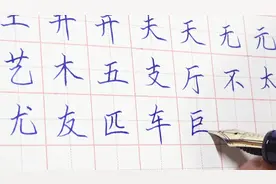 工 开 开 夫 天 无 元
艺 木 五 支 厅 不 太
尤 友 匹 车 巨